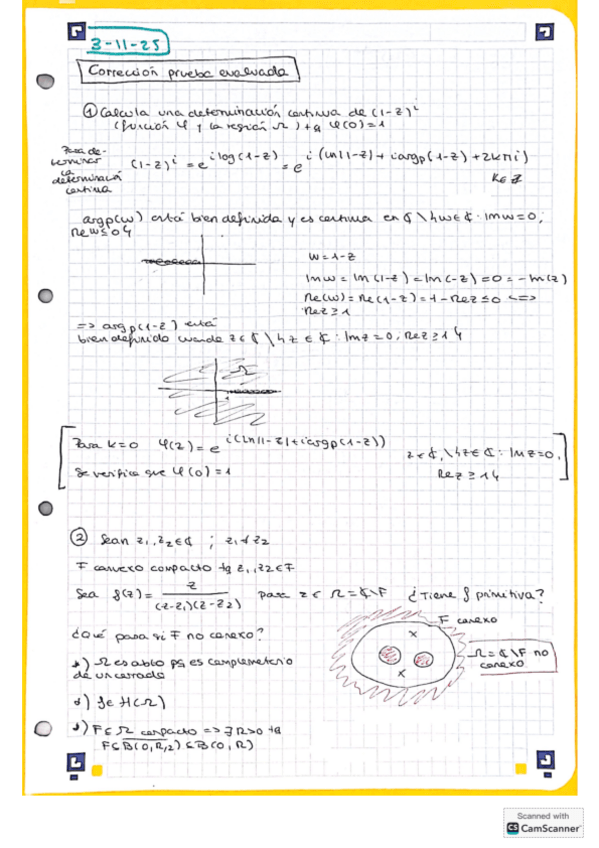 3-11-25
Corrección prueba evaluada
① Calcula una determinación continua de (1-z)^i
(función φ y la región Ω) tq φ(0)=1
Para de-
terminar
la
determinación
continua
(1-z)^i = e^{i log(1-z)} = e^{i (ln|1-z| + i argp(1-z) + 2kπi)}
k∈ℤ
argp(w) está bien definida y es continua en ℂ \ {w∈ℂ : Im w=0,
Re w≤0}
w = 1-z
Im w = Im(1-z) = Im(-z) = 0 = -Im(z)
Re(w) = Re(1-z) = 1 - Re z ≤ 0 <=>
Re z ≥ 1
=> argp(1-z) está
bien definido cuando z∈ℂ \ {z∈ℂ : Im z = 0, Re z ≥ 1}
Ω
1
Para k=0 φ(z) = e^{i(ln|1-z| + i argp(1-z))}
z∈ℂ \ {z∈ℂ : Im z=0,
Re z ≥ 1}
Se verifica que φ(0)=1
② Sean z₁, z₂ ∈ ℂ ; z₁≠z₂
F conexo compacto tq z₁, z₂ ∈ F
Sea f(z) = z / (z-z₁)(z-z₂) para z ∈ Ω = ℂ\F ¿Tiene f primitiva?
¿Qué pasa si F no conexo?
F conexo
x
x
Ω = ℂ\F no
conexo
•) Ω es abto pq es complementario
de un cerrado
•) f∈H(Ω)
•) F⊆Ω compacto => ∃R>0 tq
F⊆B(0,R/2) ⊆ B(0,R)
Scanned with
CS CamScanner